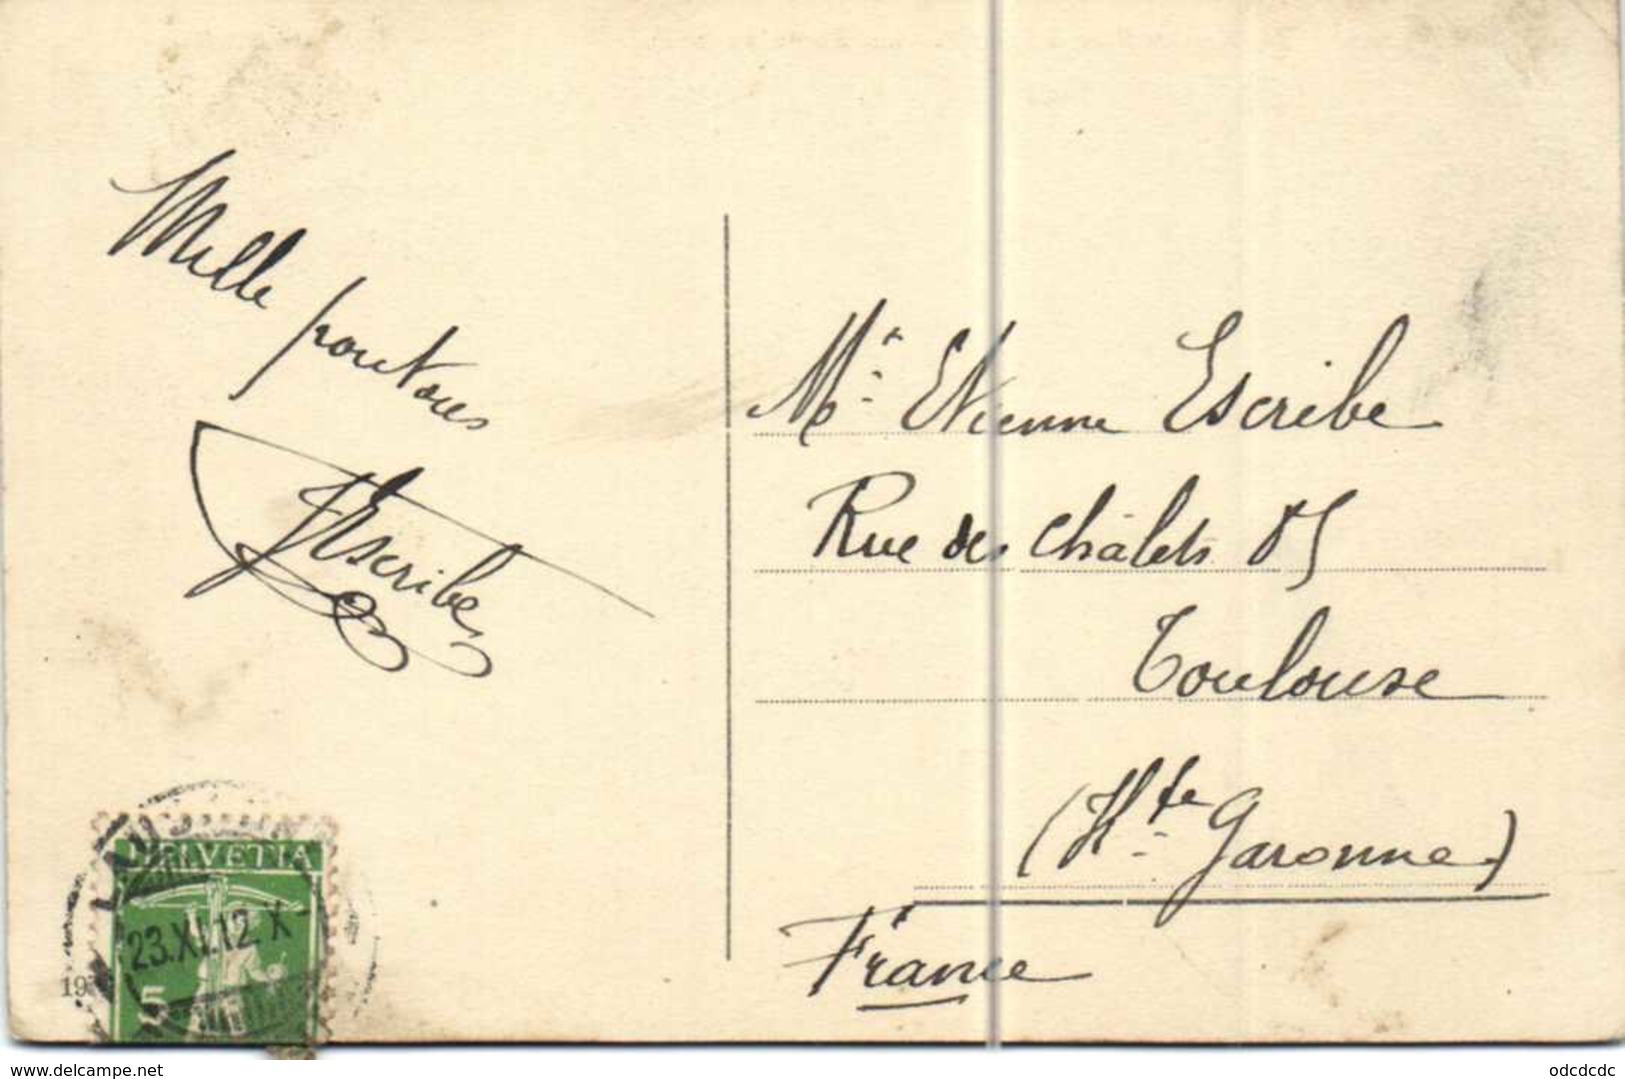 Mille
poutous
Escribe
Mr. Etienne Escribe
Rue des Châlets 85
Toulouse
(Hte Garonne)
France
HELVETIA
23.XI.12 X-
5
19
www.delcampe.net
odcdcdc